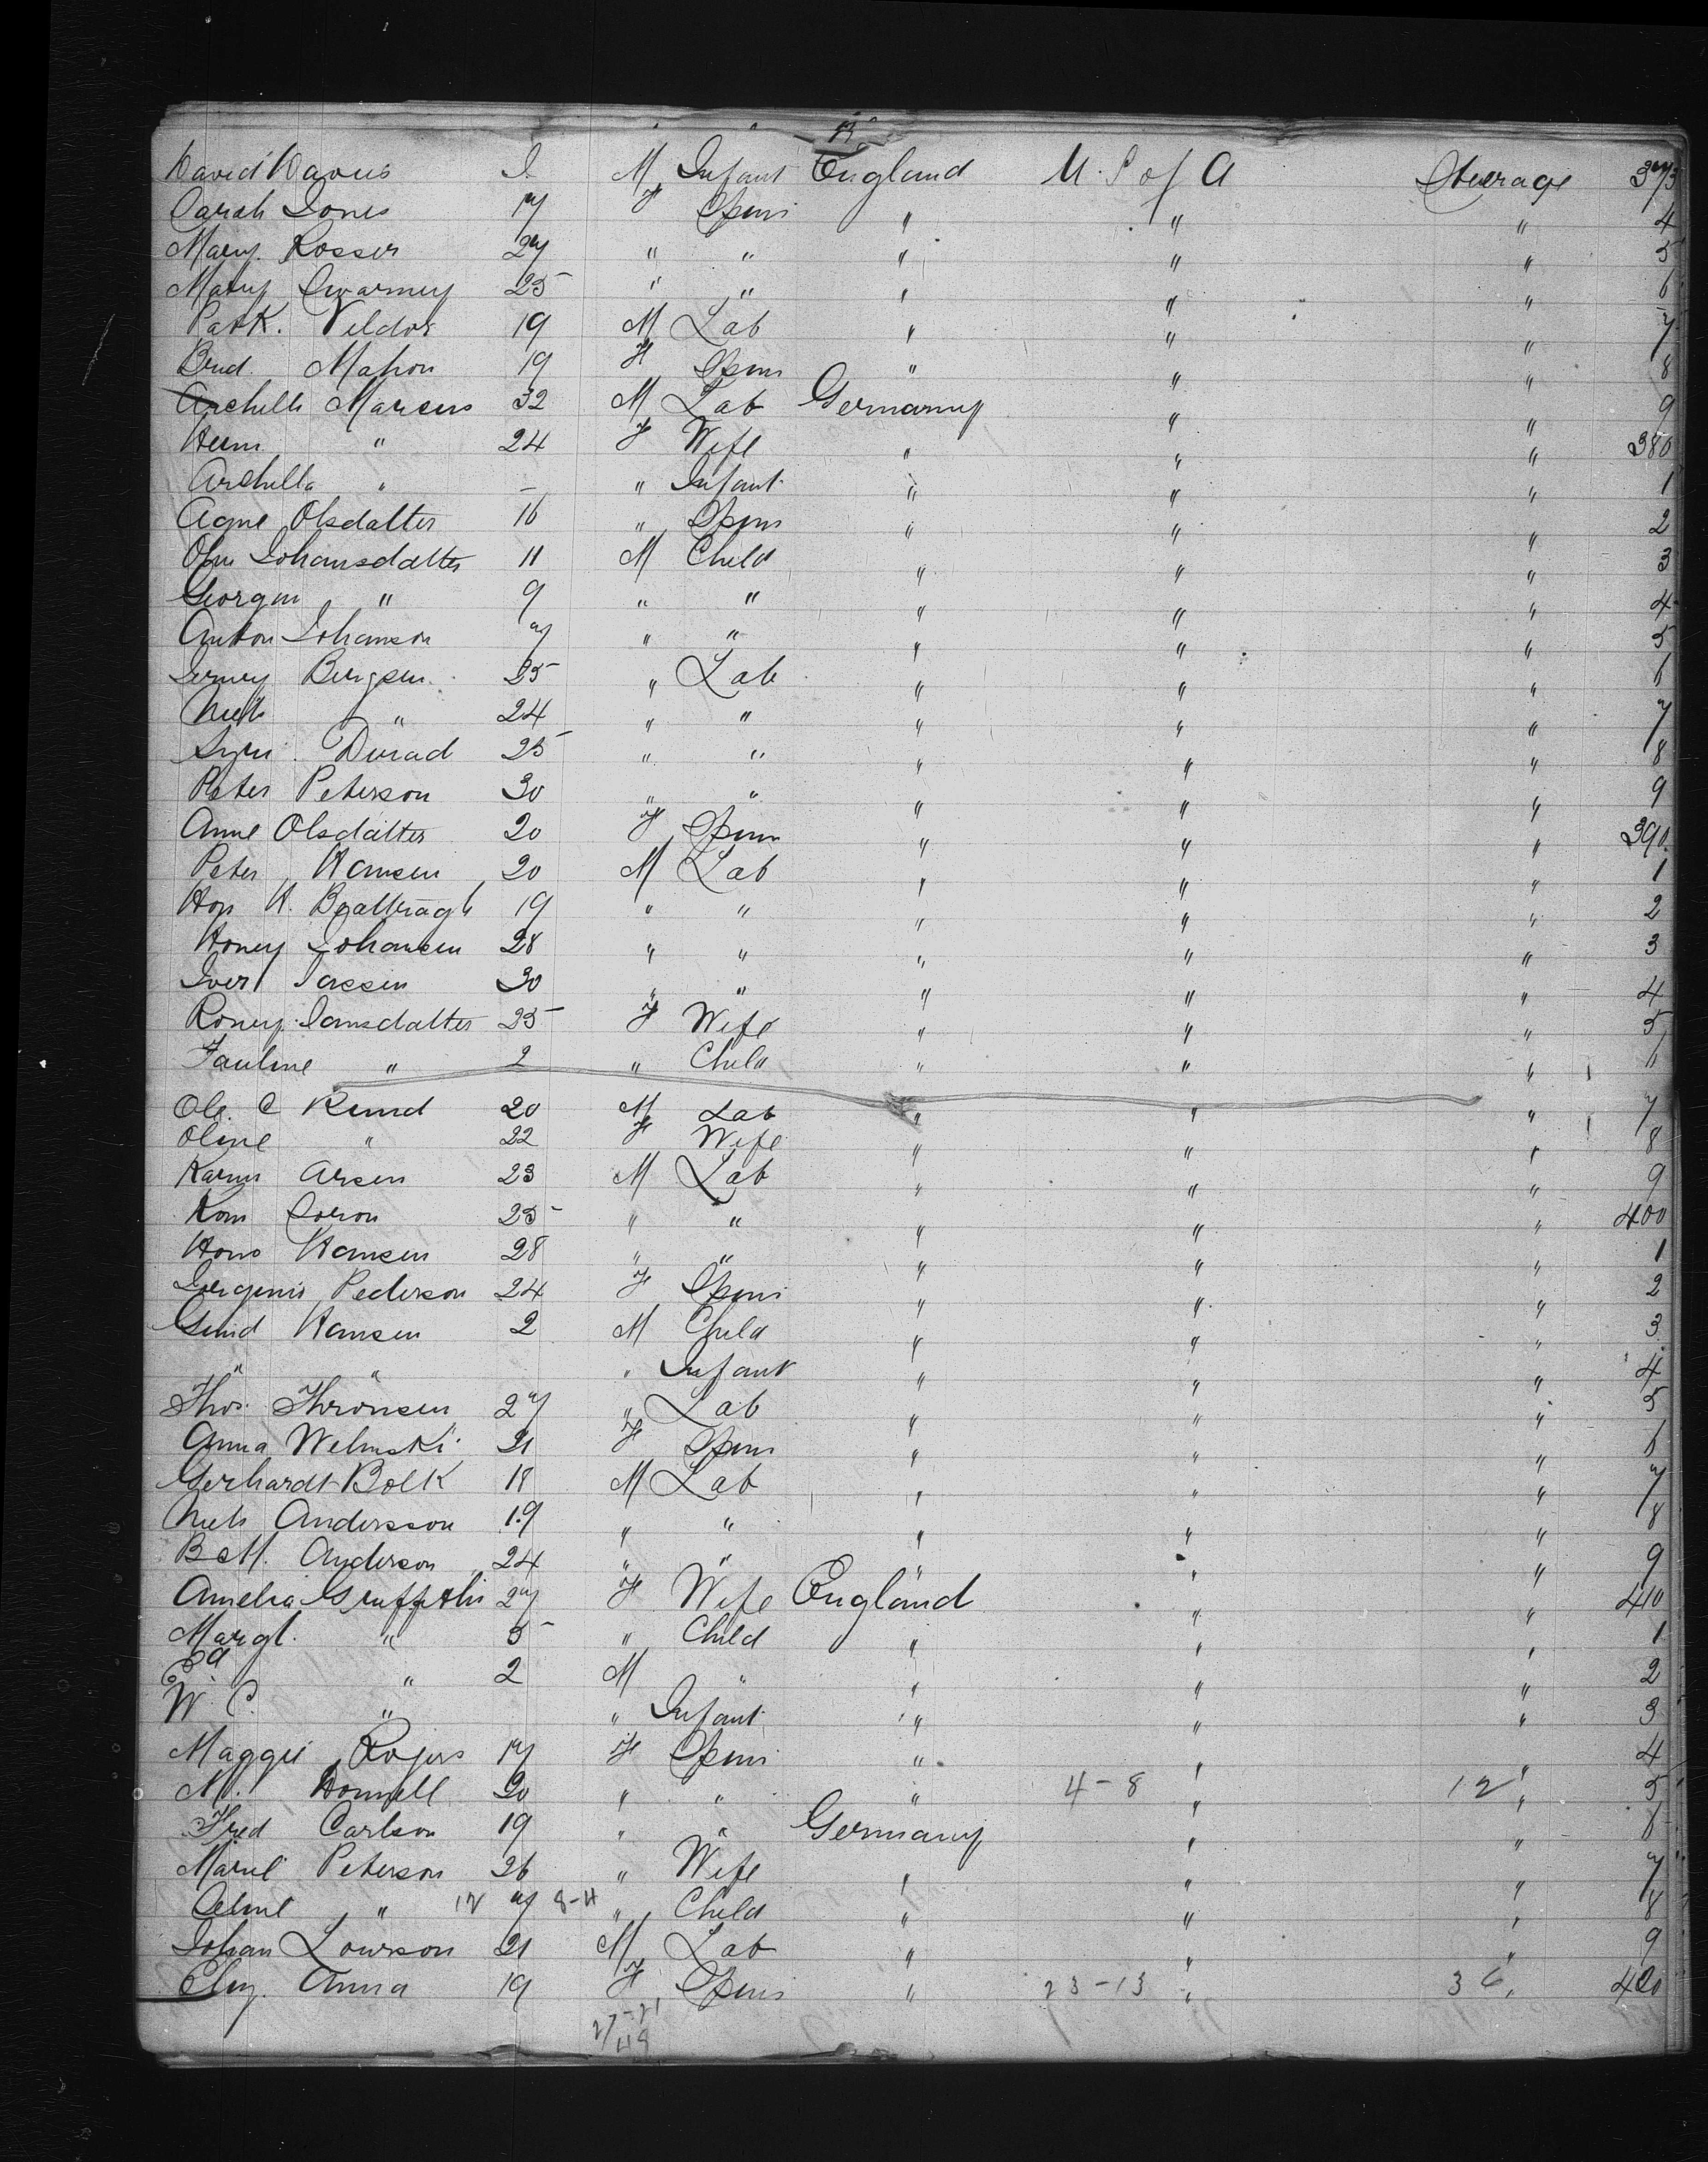 David Davies I. M Infant England U. S of A Steerage 373
Sarah Jones 17 F Spins " " " 4
Mary Rosser 27 " " " " " 5
Mary Swarney 25 " " " " " 6
Patk. 19 M Lab " " " 7
Brid. Mahon 19 F Spins " " " 8
Archells Marcus 32 M Lab Germany " " 9
Herm " 24 F Wife " " " 380
Archella " - " Infant " " " 1
Agne Olsdatter 16 " Spins " " " 2
Johansdatter 11 M Child " " " 3
Georgen " 9 " " " " " 4
Anton Johanson 7 " " " " " 5
Bergsen 25 " Lab " " " 6
Niels " 24 " " " " " 7
Durad 25 " " " " " 8
Peter Peterson 30 " " " " " 9
Anne Olsdatter 20 F Spins " " " 390
Peter Hansen 20 M Lab " " " 1
H. 19 " " " " " 2
Honey Johansen 28 " " " " " 3
Iver 30 " " " " " 4
Roney Jansdatter 25 F Wife " " " 5
Pauline " 2 " Child " " " 6
Ole. C Rund 20 M Lab " " " 7
Oline " 22 F Wife " " " 8
Karns Arsen 23 M Lab " " " 9
Kom Soron 25 " " " " " 400
Hans Hansen 28 " " " " " 1
Pederson 24 F Spins " " " 2
Gund Hansen 2 M Child " " " 3
" " " Infant " " " 4
Thos. Thronsen 27 " Lab " " " 5
Anna Welmski 21 F Spins " " " 6
Gerhardt Bolk 18 M Lab " " " 7
Niels Andersson 19 " " " " " 8
B M. Anderson 24 " " " " " 9
Amelia Gruffths 27 F Wife England " " 410
Margt. " 5 " Child " " " 1
Ed " 2 M " " " " 2
W. C. " " Infant " " " 3
Maggie Rogers 17 F Spins " " " 4
M. Honnell 20 " " " 4-8 " 12 " 5
Fred Carlson 19 " " Germany " " 6
Marie Peterson 26 " Wife " " " 7
Celine " 12 7 8-11 " Child " " " 8
Johan Lowson 21 M Lab " " " 9
Eliz. Anna 19 F Spins " 23-13 " 36 " 420
27-21